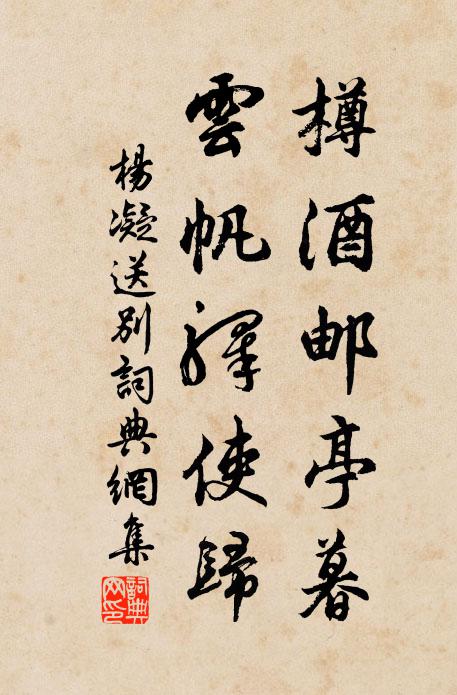 樽酒邮亭暮
雲帆驛使歸
楊凝送別詞典網集
詞典
网印